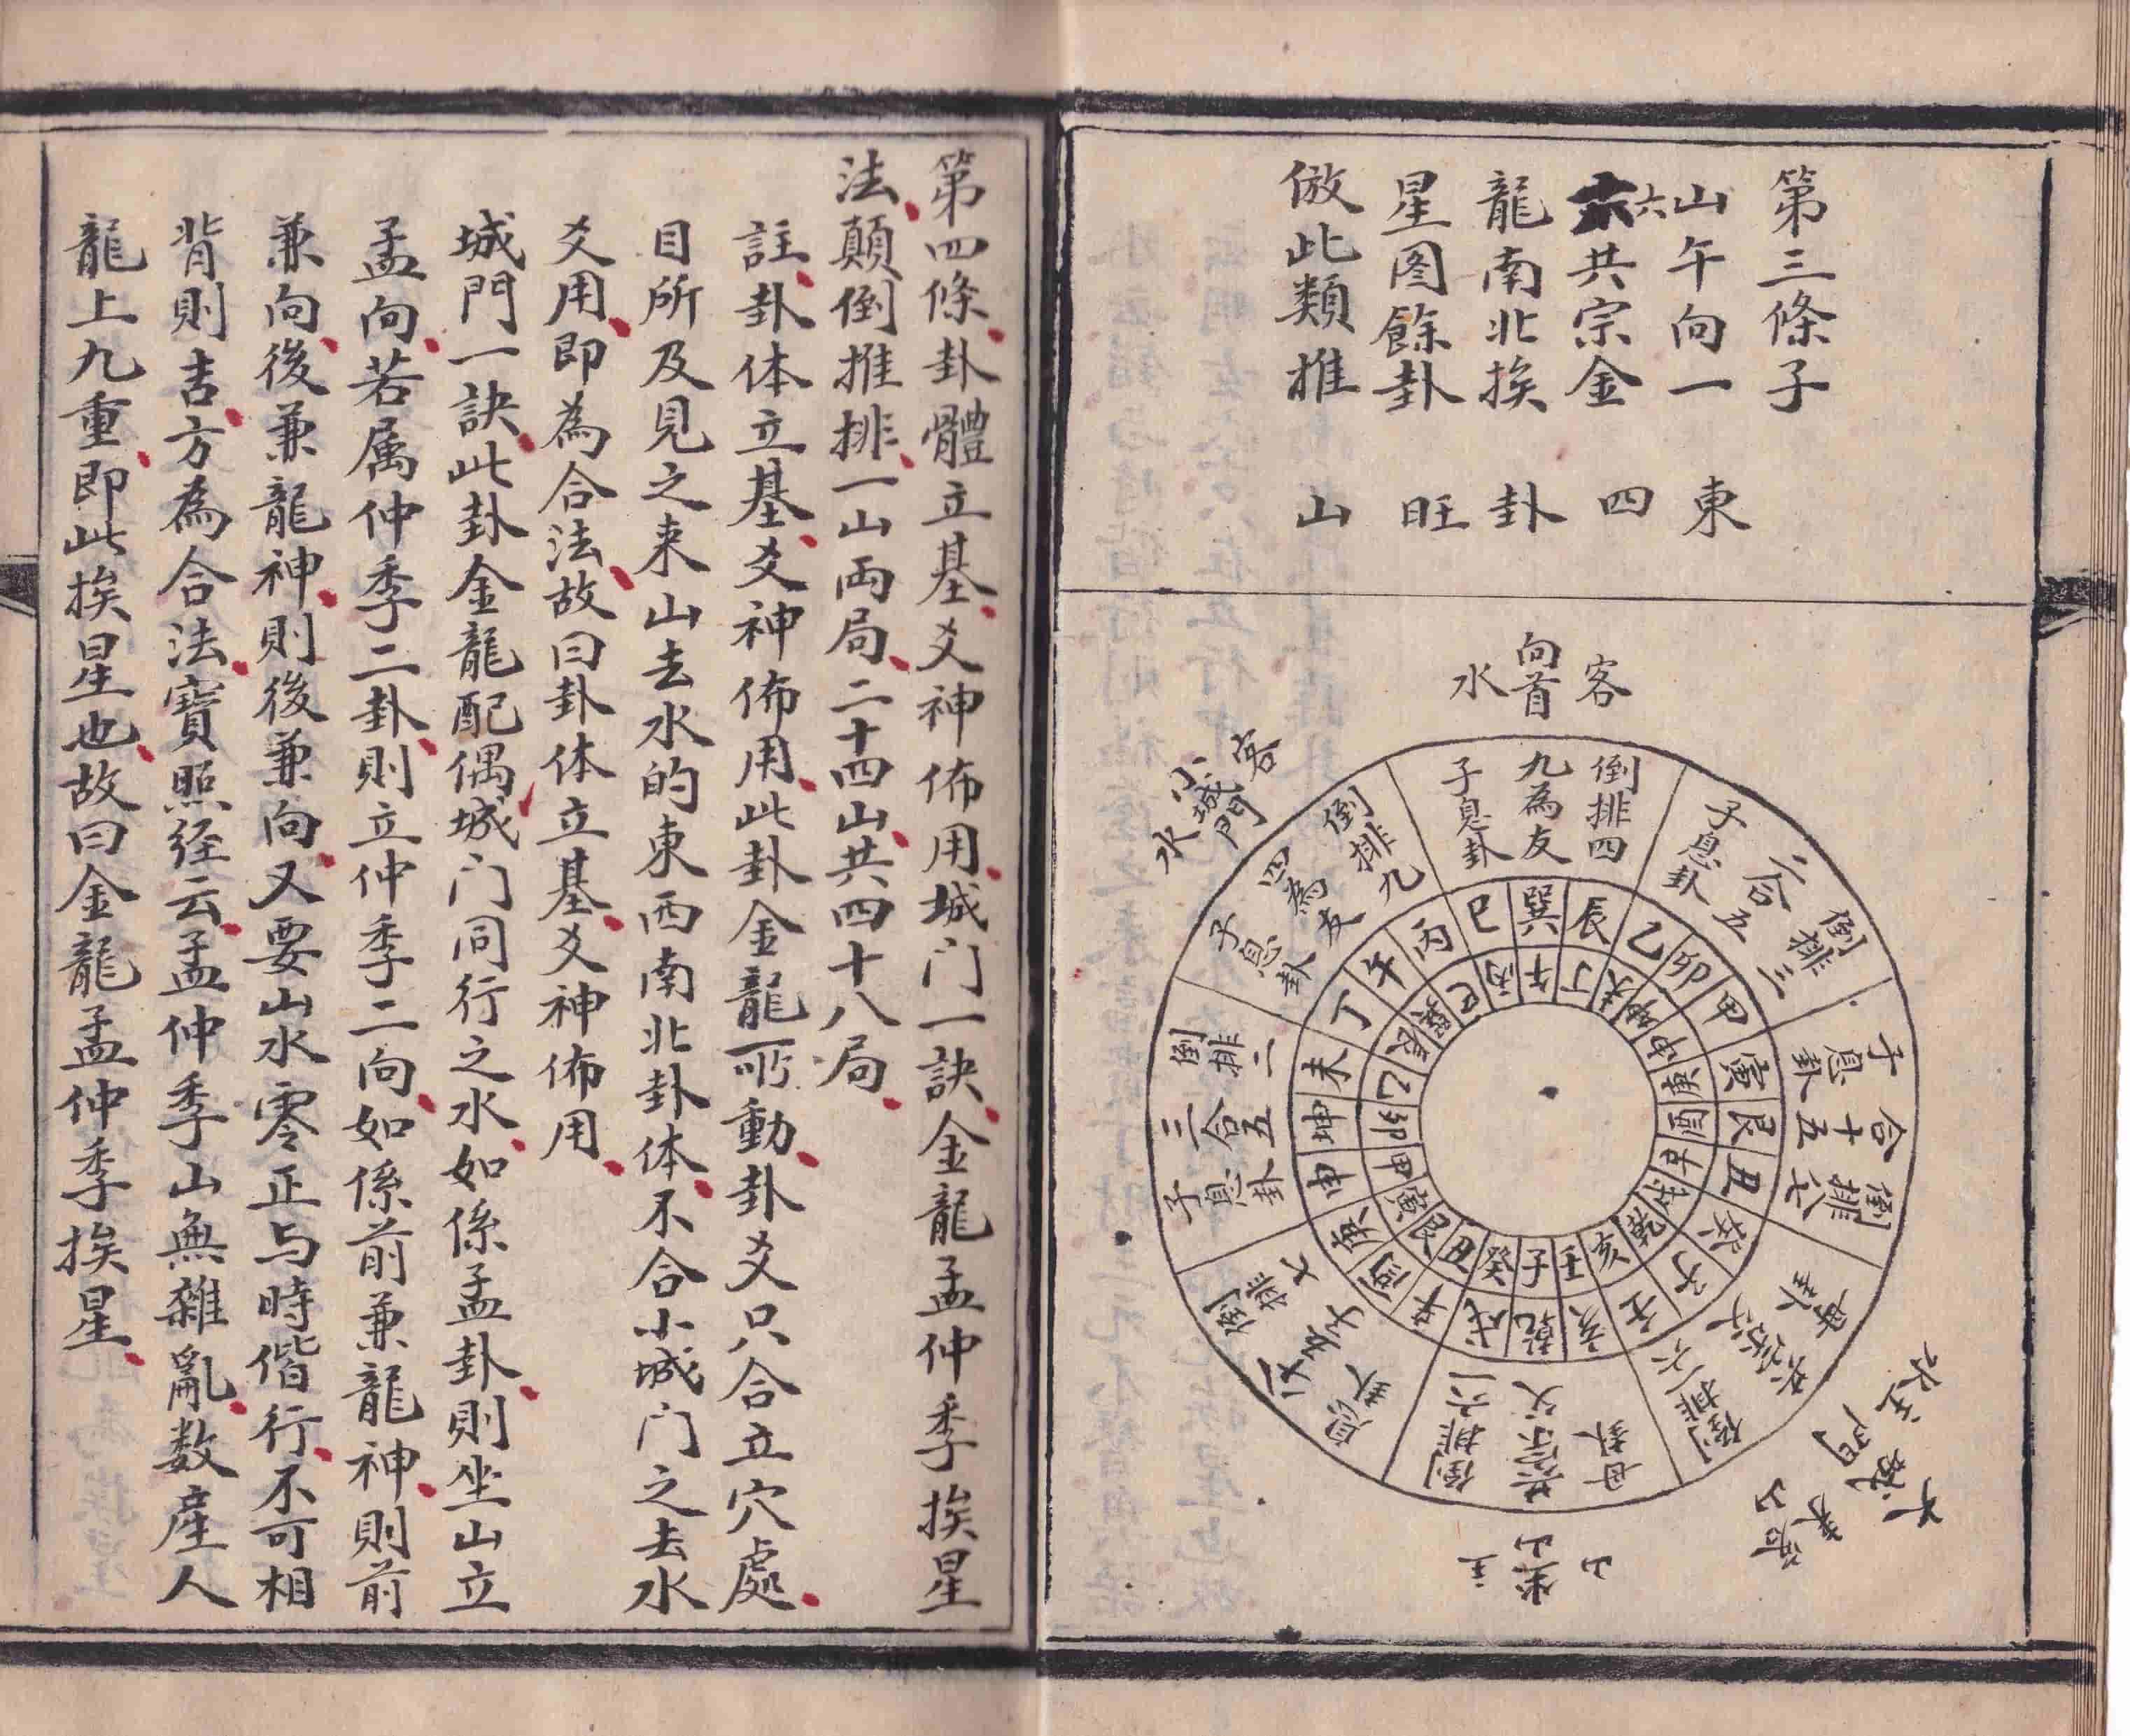 第三條子
山午向一
六共宗金
龍南北挨
星图餘卦
倣此類推
東
四
卦
旺
山
客
向首
水
客
小城門
水
倒排四
九為友
子息卦
倒排三
二合五
子息卦
子息卦
合十五
倒排七八
母卦
共宗父
倒排一六
母卦
共宗父
倒排六一
倒排七
子息卦
倒排二
三合五
子息卦
倒排九
四為友
子息卦
巳巽辰乙卯甲寅艮丑癸子壬亥乾戌辛酉庚申坤未丁午丙
丙午丁未坤申庚酉辛戌乾亥壬子癸丑艮寅甲卯乙辰巽巳
山
坐山
主
第四條卦體立基爻神佈用城门一訣金龍孟仲季挨星
法顛倒推排一山両局二十四山共四十八局
註卦体立基爻神佈用此卦金龍所動卦爻只合立穴處
目所及見之来山去水的東西南北卦体不合小城门之去水
爻用即為合法故曰卦体立基爻神佈用
城門一訣此卦金龍配偶城门同行之水如係孟卦則坐山立
孟向若属仲季二卦則立仲季二向如係前兼龍神則前
兼向後兼龍神則後兼向又要山水零正与時偕行不可相
背則吉方為合法寶照经云孟仲季山無雜亂数産人
龍上九重即此挨星也故曰金龍孟仲季挨星